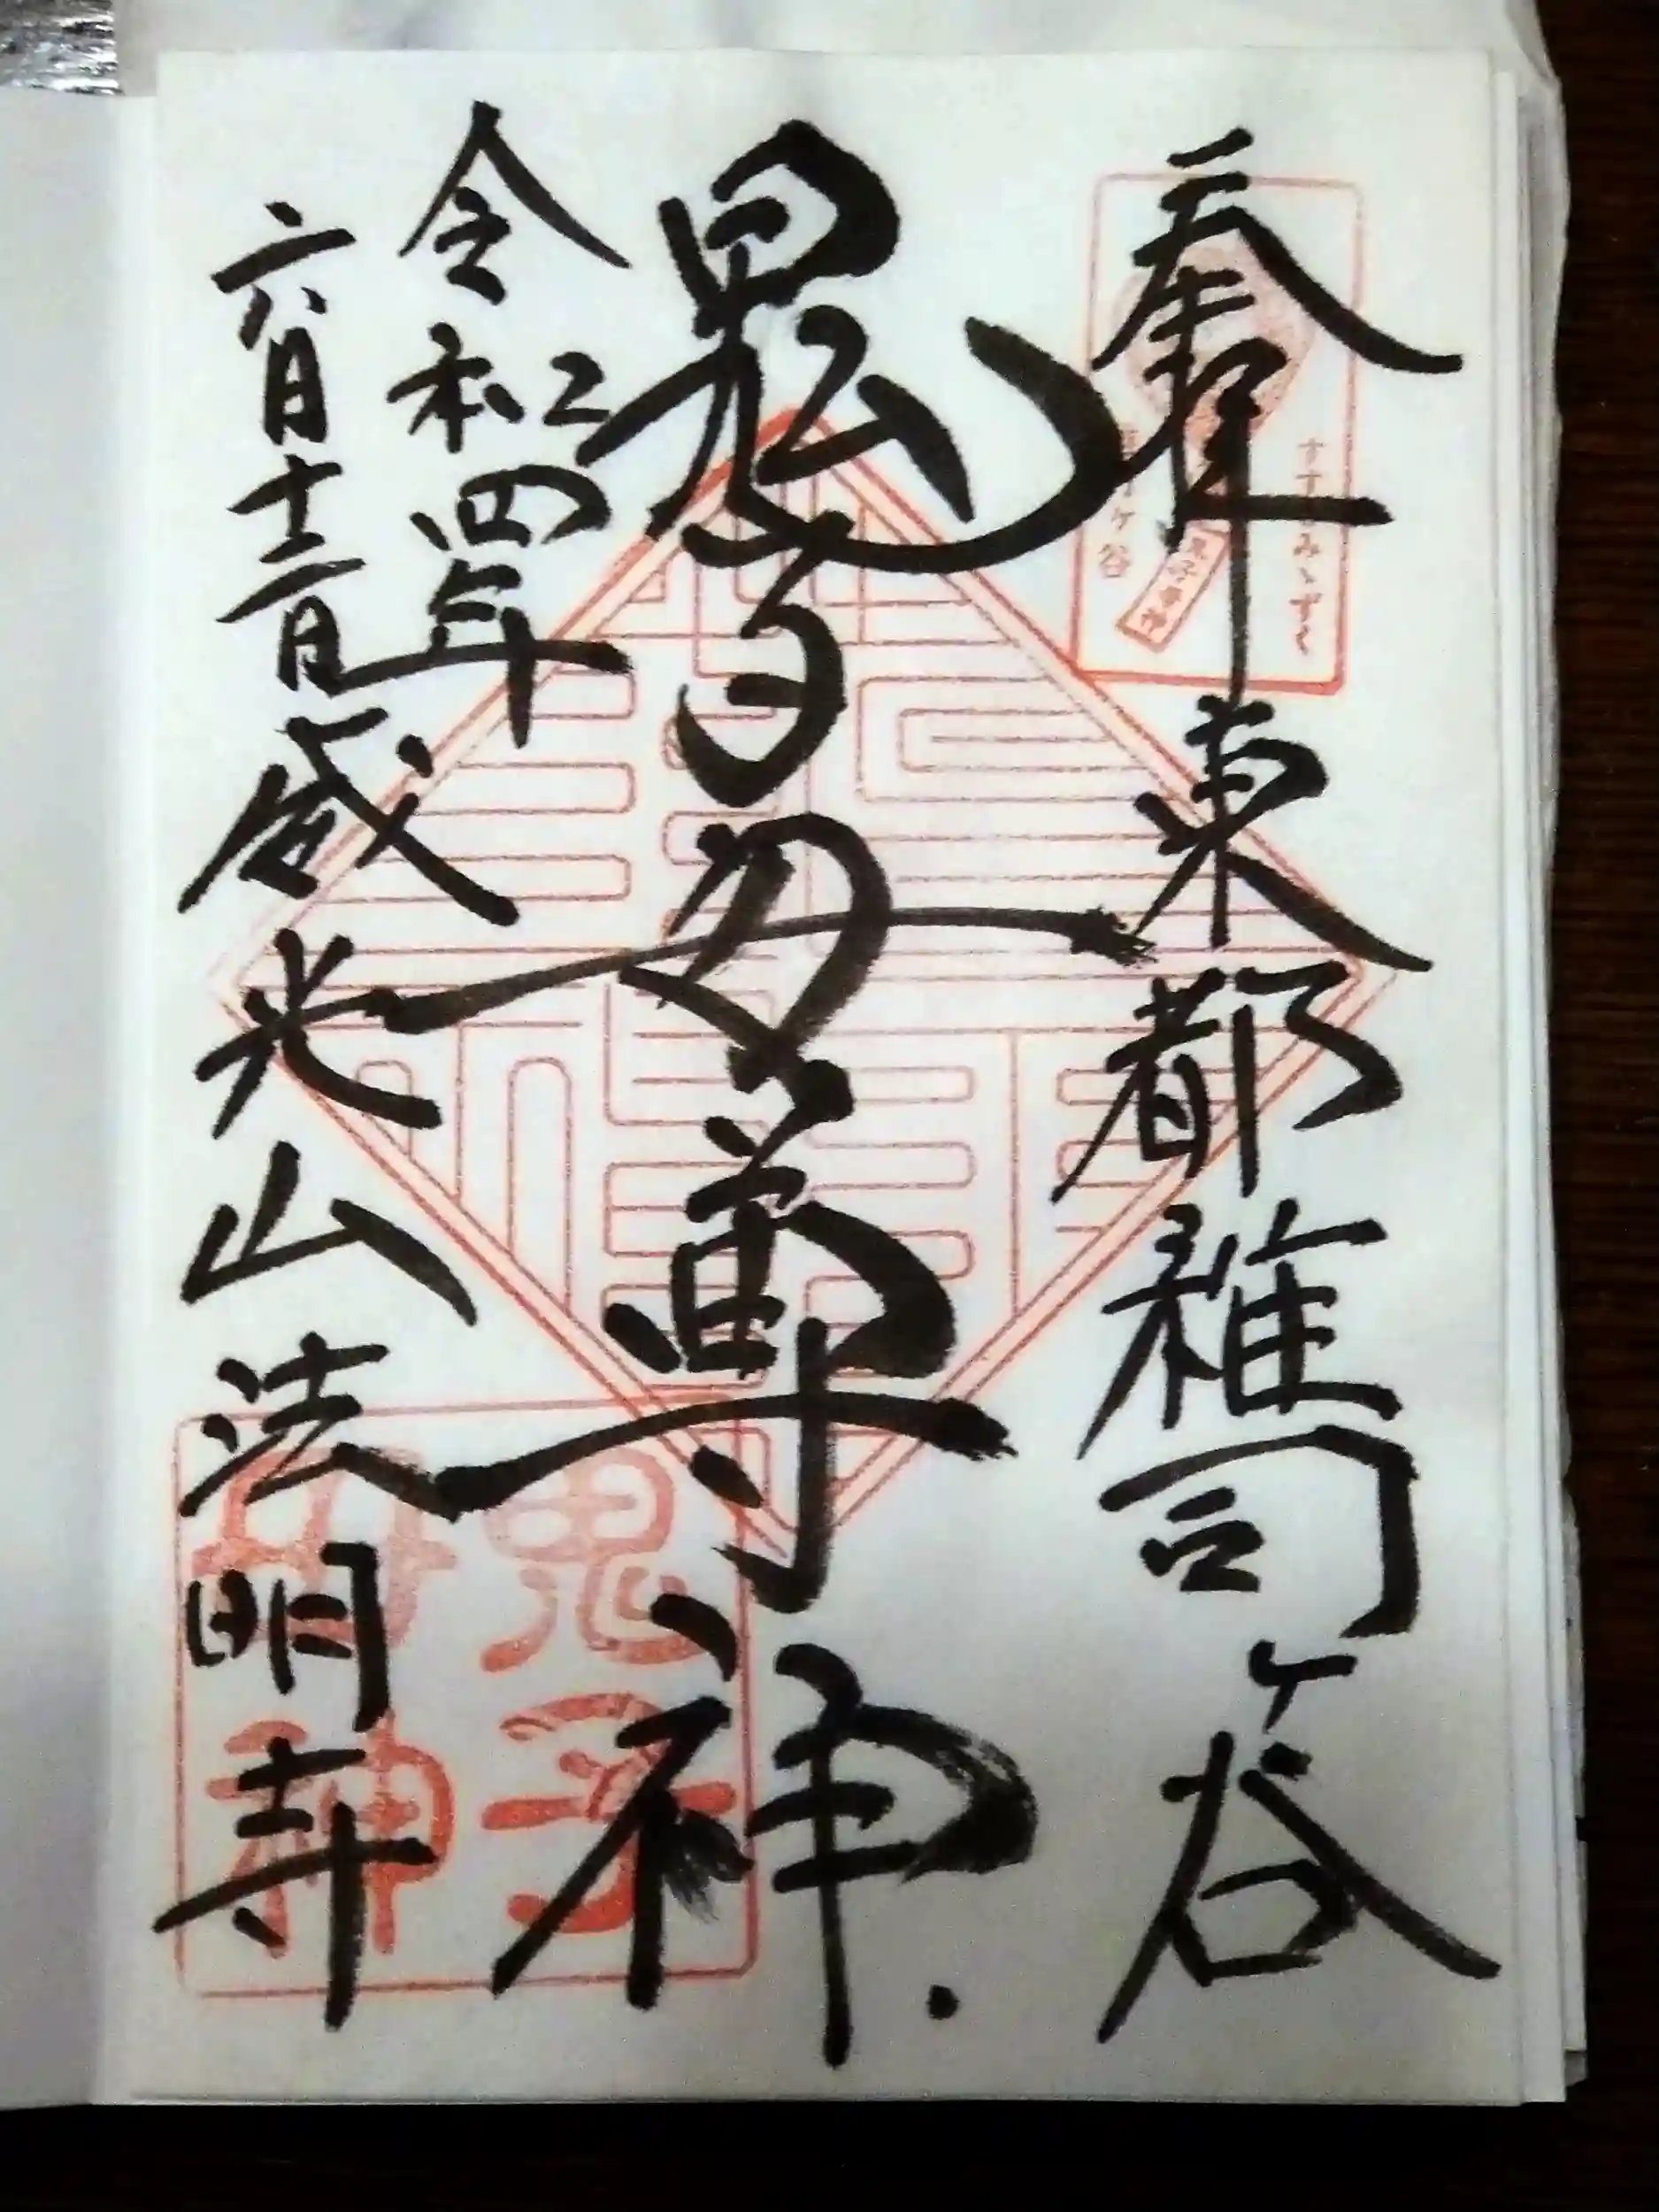 奉拝 東都雑司ヶ谷
すすきみゝずく
鬼子母神
ヶ谷
鬼子母尊神
令和四年
六月十二日 威光山法明寺
鬼子母神